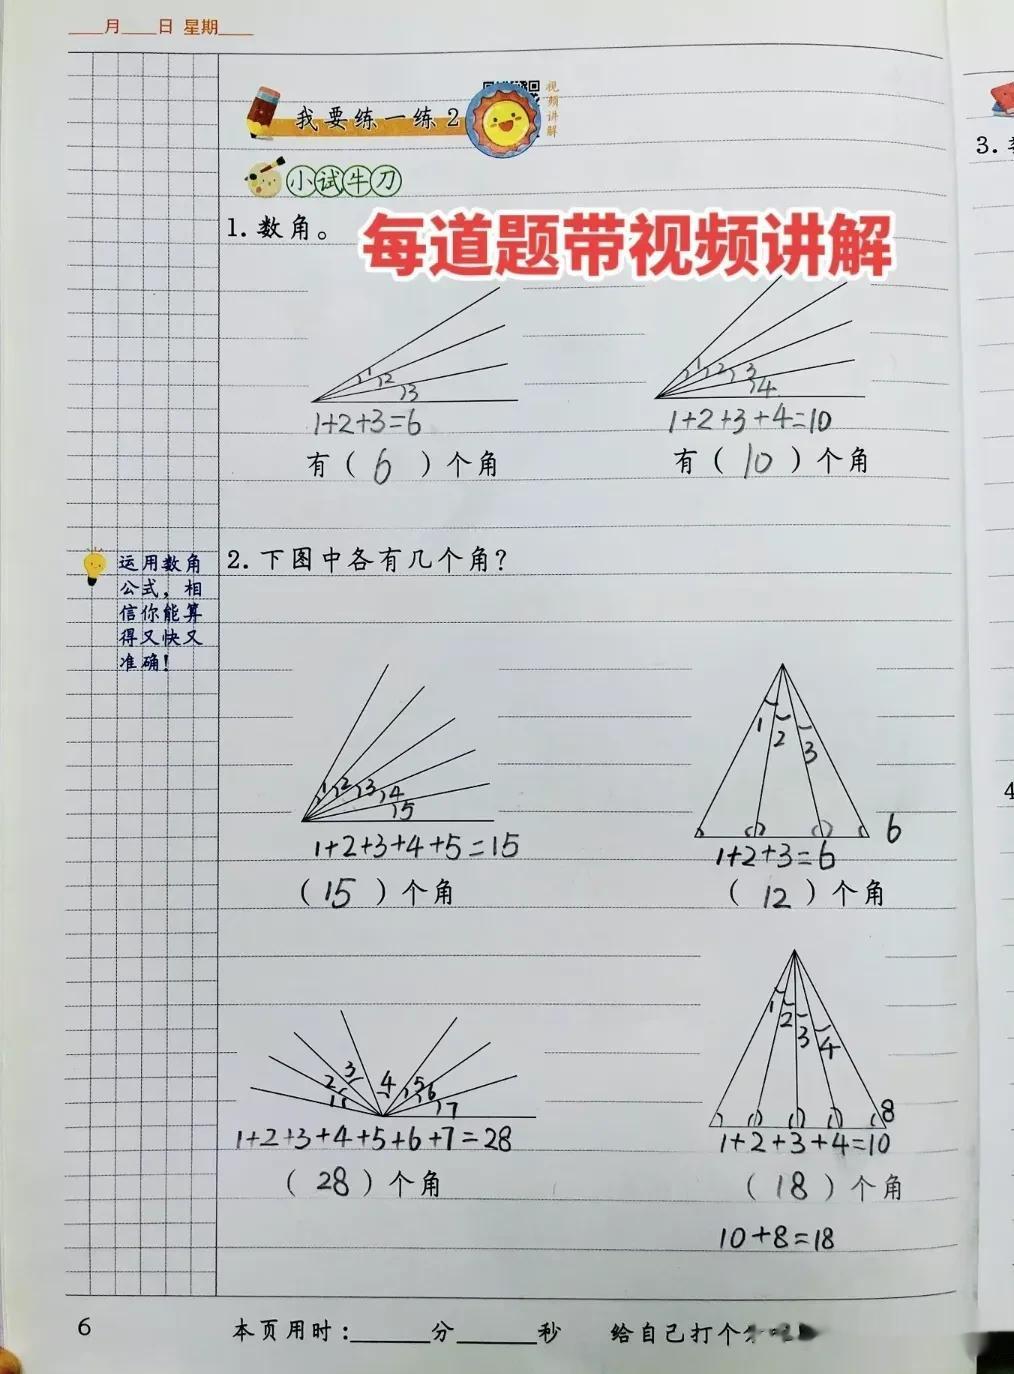 ____月____日 星期____
我要练一练2
视频讲解
小试牛刀
3.
1.数角。
每道题带视频讲解
1 2 3
1 2 3 4
1+2+3=6
1+2+3+4=10
有( 6 )个角
有( 10 )个角
运用数角
公式，相
信你能算
得又快又
准确!
2.下图中各有几个角?
1 2 3 4 5
1 2 3
6
1+2+3+4+5=15
1+2+3=6
( 15 )个角
( 12 )个角
4
1 2 3 4 5 6 7
1 2 3 4
8
1+2+3+4+5+6+7=28
1+2+3+4=10
( 28 )个角
( 18 )个角
10+8=18
6
本页用时:______分______秒
给自己打个